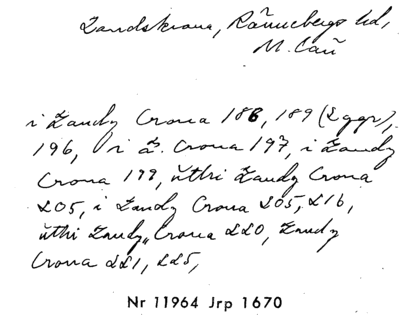 Landskrona, Rönnebergs hd,
M. län
i Landz Crona 188, 189 (2 ggr),
196, i L. Crona 197, i Landz
Crona 199, uthi Landz Crona
205, i Landz Crona 205, 216,
uthi Landz Crona 220, Landz
Crona 221, 225,
Nr 11964 Jrp 1670